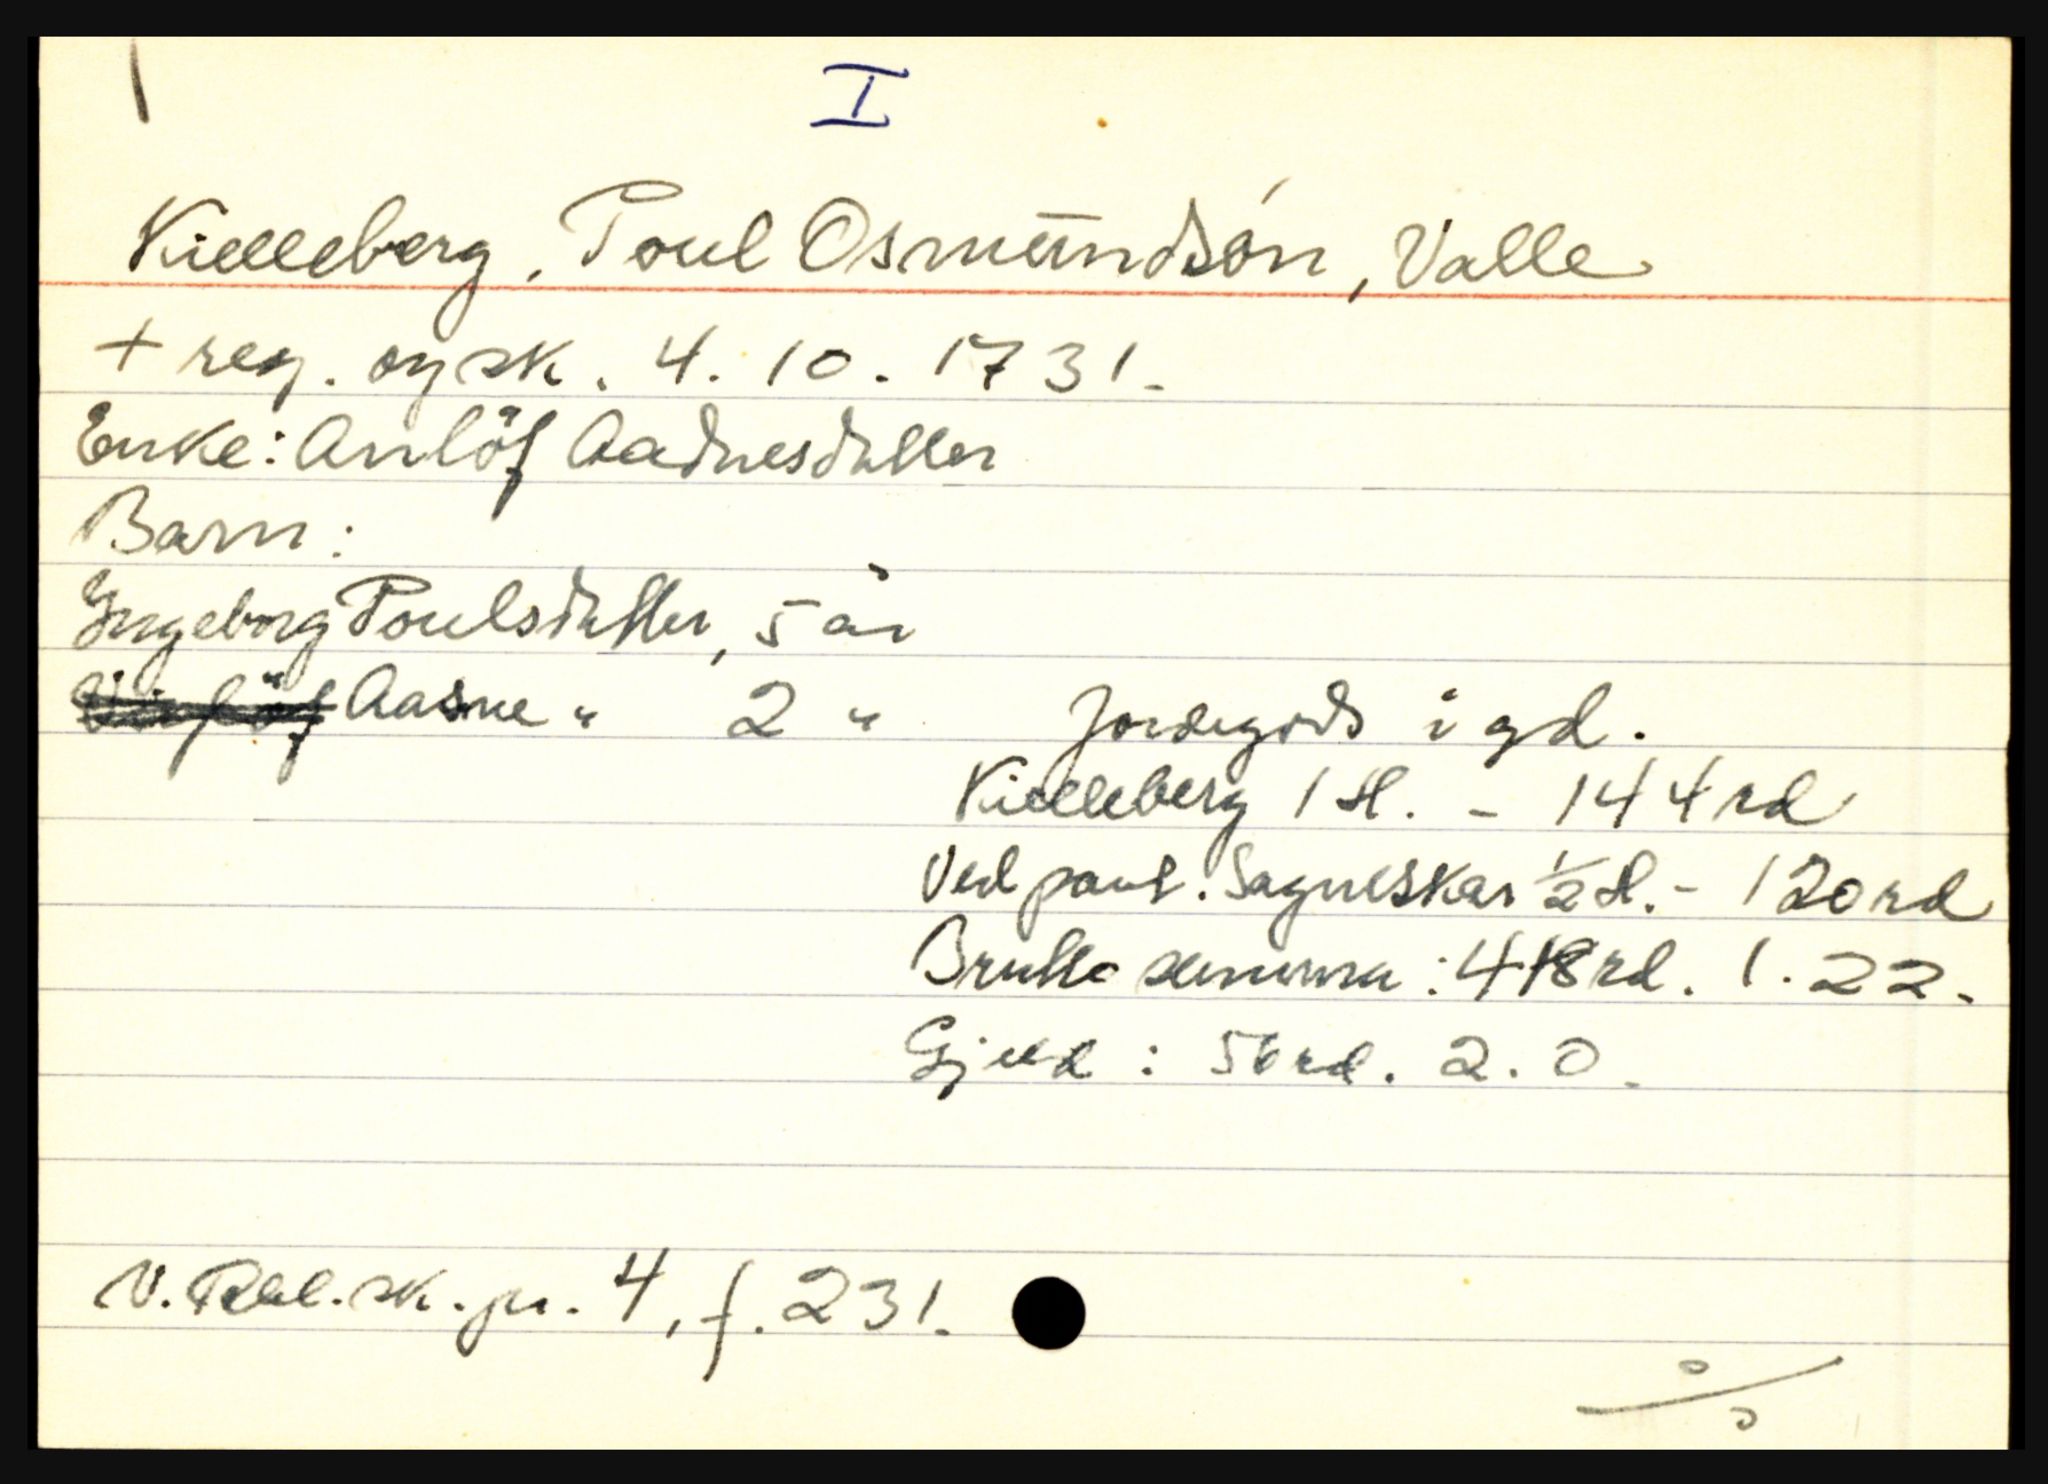 I
Kielleberg, Poul Osmundsön, Valle
+ reg. og sk. 4. 10. 1731.
Enke: Anlöf Aadnesdatter
Barn:
Ingeborg Poulsdatter, 5 år
Aasne " 2 " Jordegods i gd.
Kielleberg 1 H. - 144 rd
Ved pant. Sagneskar 1/2 H. - 120 rd
Brutto summa: 418 rd. 1. 22.
Gjeld: 56 rd. 2. 0.
V. Rbl. sk. pr. 4, f. 231.